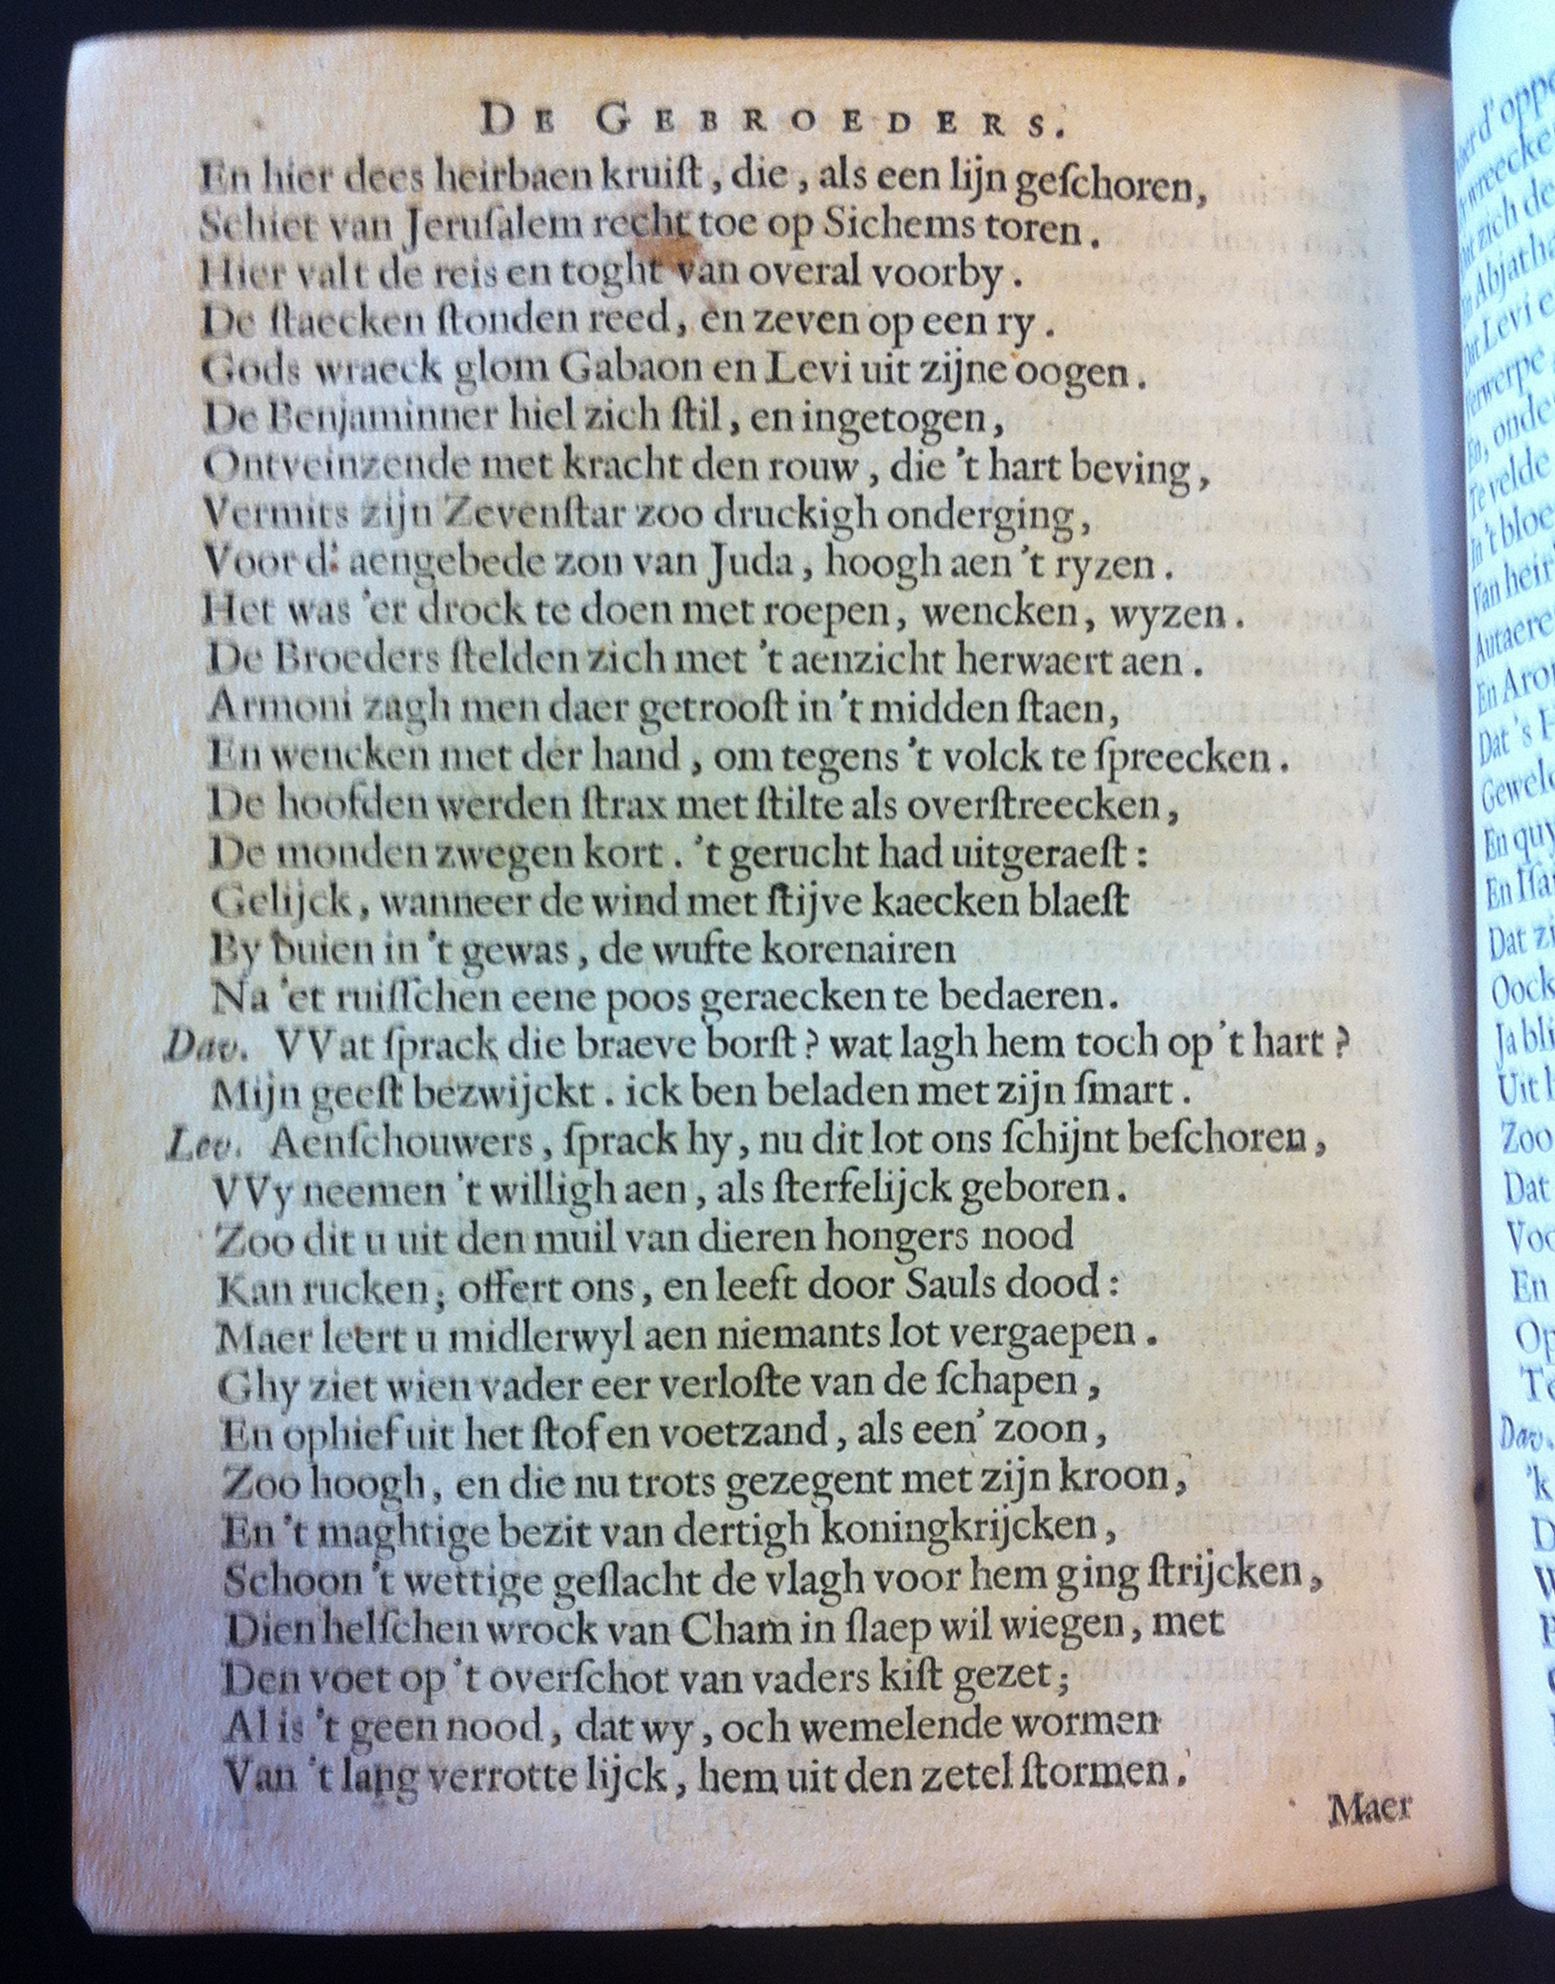 DE GEBROEDERS.
En hier dees heirbaen kruiſt, die, als een lijn geſchoren,
Schiet van Jeruſalem recht toe op Sichems toren.
Hier valt de reis en toght van overal voorby.
De ſtaecken ſtonden reed, en zeven op een ry.
Gods wraeck glom Gabaon en Levi uit zijne oogen.
De Benjaminner hiel zich ſtil, en ingetogen,
Ontveinzende met kracht den rouw, die 't hart beving,
Vermits zijn Zevenſtar zoo druckigh onderging,
Voor d: aengebede zon van Juda, hoogh aen 't ryzen.
Het was 'er drock te doen met roepen, wencken, wyzen.
De Broeders ſtelden zich met 't aenzicht herwaert aen.
Armoni zagh men daer getrooſt in 't midden ſtaen,
En wencken met der hand, om tegens 't volck te ſpreecken.
De hoofden werden ſtrax met ſtilte als overſtreecken,
De monden zwegen kort. 't gerucht had uitgeraeſt:
Gelijck, wanneer de wind met ſtijve kaecken blaeſt
By buien in 't gewas, de wufte korenairen
Na 'et ruiſſchen eene poos geraecken te bedaeren.
Dav. VVat ſprack die braeve borſt? wat lagh hem toch op 't hart?
Mijn geeſt bezwijckt. ick ben beladen met zijn ſmart.
Lev. Aenſchouwers, ſprack hy, nu dit lot ons ſchijnt beſchoren,
VVy neemen 't willigh aen, als ſterfelijck geboren.
Zoo dit u uit den muil van dieren hongers nood
Kan rucken; offert ons, en leeft door Sauls dood:
Maer leert u midlerwyl aen niemants lot vergaepen.
Ghy ziet wien vader eer verloſte van de ſchapen,
En ophief uit het ſtof en voetzand, als een' zoon,
Zoo hoogh, en die nu trots gezegent met zijn kroon,
En 't maghtige bezit van dertigh koningkrijcken,
Schoon 't wettige geſlacht de vlagh voor hem ging ſtrijcken,
Dien helſchen wrock van Cham in ſlaep wil wiegen, met
Den voet op 't overſchot van vaders kiſt gezet;
Al is 't geen nood, dat wy, och wemelende wormen
Van 't lang verrotte lijck, hem uit den zetel ſtormen.
Maer